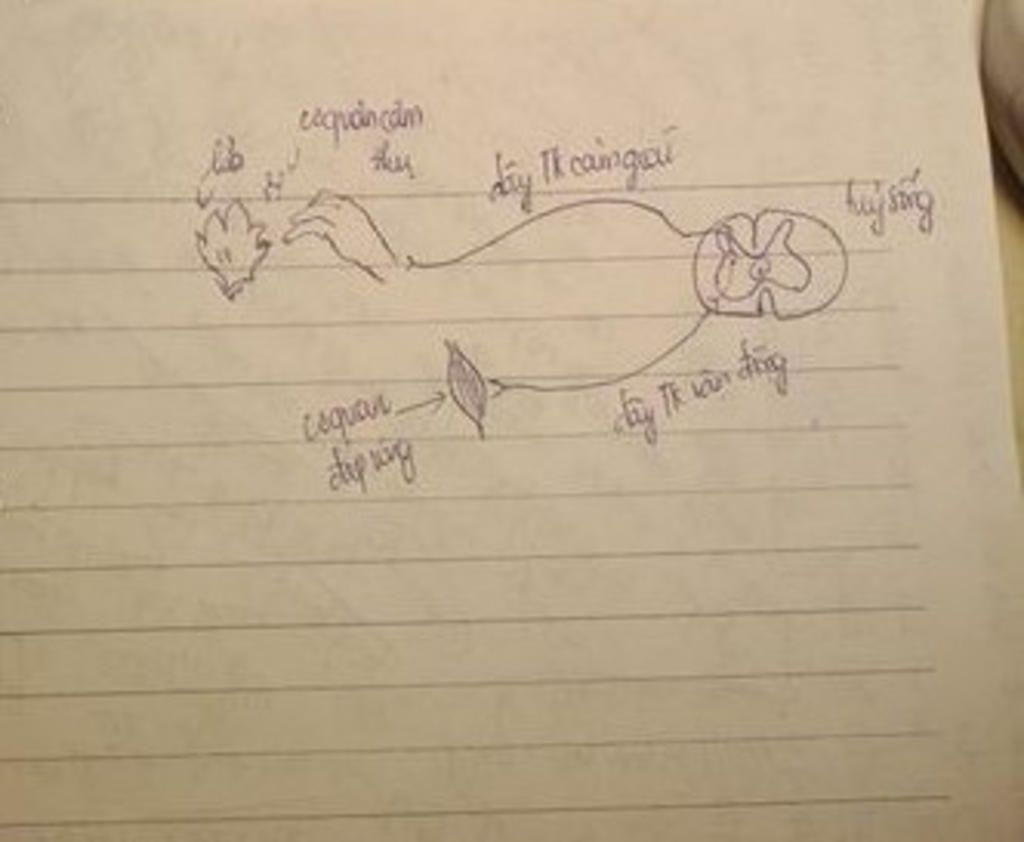 lửa
cơ quan cảm
thụ
dây TK cảm giác
tuỷ sống
dây TK vận động
cơ quan
đáp ứng